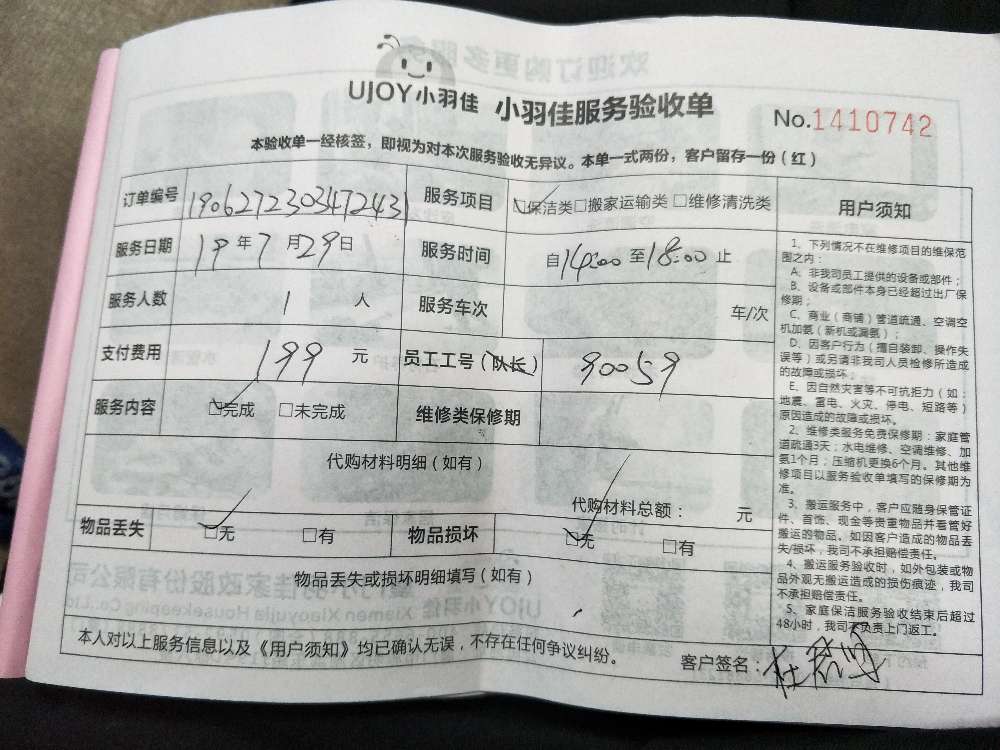 UJOY小羽佳 小羽佳服务验收单 No.1410742
本验收单一经核签，即视为对本次服务验收无异议。本单一式两份，客户留存一份（红）
订单编号 190627230347243 服务项目 保洁类 □搬家运输类 □维修清洗类
服务日期 19年7月29日 服务时间 自14:00至18:00止
服务人数 1 人 服务车次 车/次
支付费用 199 元 员工工号（队长） 90059
服务内容 完成 □未完成 维修类保修期
代购材料明细（如有）
代购材料总额： 元
物品丢失 无 □有 物品损坏 无 □有
物品丢失或损坏明细填写（如有）
本人对以上服务信息以及《用户须知》均已确认无误，不存在任何争议纠纷。 客户签名：
用户须知
1、下列情况不在维修项目的维保范
围之内：
A、非我司员工提供的设备或部件；
B、设备或部件本身已经超过出厂保
修期；
C、商业（商铺）管道疏通、空调空
机加氨（新机或漏氨）；
D、因客户行为（擅自装卸、操作失
误等）或另请非我司人员检修所造成
的故障或损坏；
E、因自然灾害等不可抗拒力（如：
地震、雷电、火灾、停电、短路等）
原因造成的故障或损坏。
2、维修类服务免费保修期：家庭管
道疏通3天；水电维修、空调维修、加
氨1个月；压缩机更换6个月。其他维
修项目以服务验收单填写的保修期为
准。
3、搬运服务中，客户应随身保管证
件、首饰、现金等贵重物品并看管好
搬运的物品。如因客户造成的物品丢
失/损坏，我司不承担赔偿责任。
4、搬运服务验收时，如外包装或物
品外观无搬运造成的损伤痕迹，我司
不承担赔偿责任。
5、家庭保洁服务验收结束后超过
48小时，我司不负责上门返工。